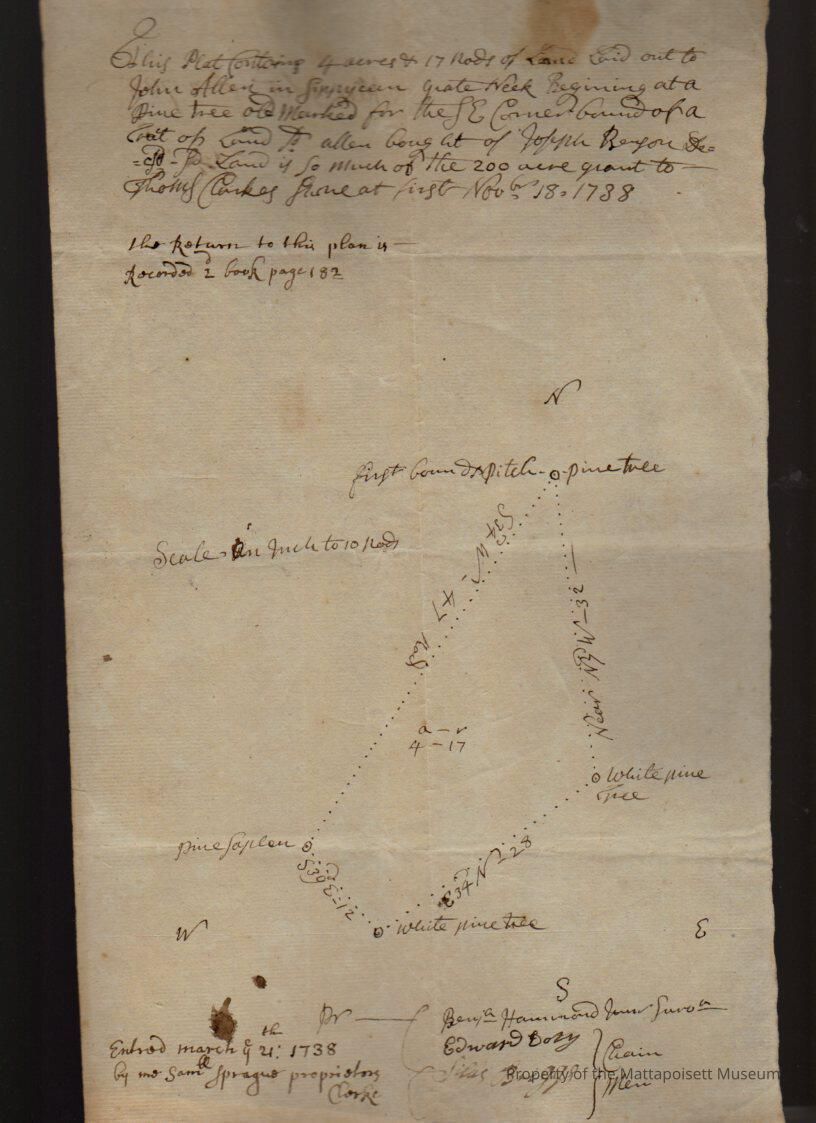 This Plat Containg 4 acres & 17 Rods of Land Laid out to
John Allen in Sippycan Grate Neck Begining at a
Pine tree old Marked for the SE Corner bound of a
of Land sd allen bought of Joseph De=
=csd - sd Land is So much of the 200 acre grant to
Thoms Clarkes at first Novbr 18=1738
the Return to this plan is
Recorded 2d book page 182
N
first bound & Pitch - pine tree
Scale An Inch to 10 Rods
S 34 W - 47 Rods
Near N W - 32
a - r
4 - 17
White pine
Tree
pine Saplen
S 39 E - 12
E 34 N - 28
White pine tree
W
E
S
Pr
Benja Hammond Junr Survor
Edward Doty
Silas
Chain
Men
Entred march ye 21th: 1738
by me Samll Sprague proprietors
Clerke
Property of the Mattapoisett Museum